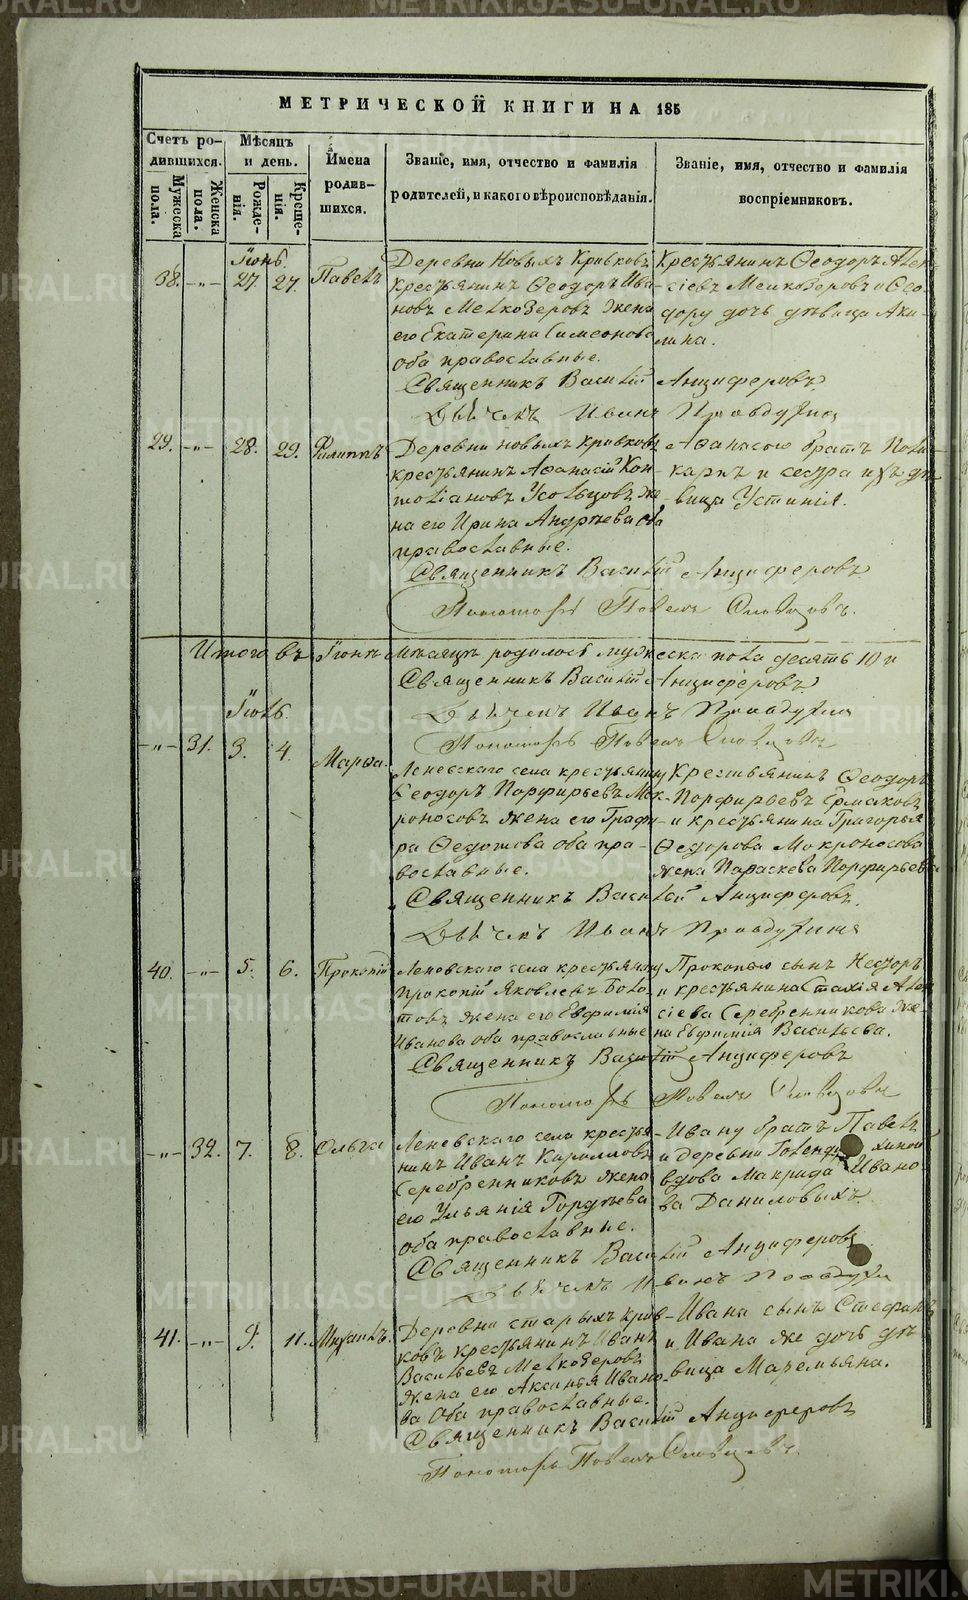 МЕТРИЧЕСКОЙ КНИГИ НА 185
Счетъ ро-
дившихся.
Мужеска
пола.
Женска
пола.
Мѣсяцъ
и день.
Рожде-
нія.
Креще-
нія.
Имена
родив-
шихся.
Званіе, имя, отчество и фамилія
родителей, и какого вѣроисповѣданія.
Званіе, имя, отчество и фамилія
воспріемниковъ.
Іюнь.
38. -„- 27. 27. Павелъ
Деревни Новыхъ Кривковъ
крестьянинъ Ѳеодоръ Ива-
новъ Мелкозеровъ жена
его Екатерина Симеонова
оба православные.
Крестьянинъ Ѳеодоръ Алек-
сіевъ Мелкозеровъ и Ѳео-
дору дочь дѣвица Аки-
лина.
Священникъ Василій Анциферовъ
Дьячекъ Иванъ Правдухин
29. -„- 28. 29. Филиппъ
Деревни новыхъ кривковъ
крестьянинъ Аѳанасій Кон-
Усольцовъ же-
на его Ирина Андреева оба
православные.
Аѳанасію братъ Поли-
карпъ и сестра ихъ дѣ-
вица Устинія.
Священникъ Василій Анциферовъ
Пономарь Павелъ Словцовъ.
Итого въ Іюнѣ Мѣсяцѣ родилось мужеска пола десять 10 и
Священникъ Василій Анциферовъ
Дьячекъ Иванъ Правдухин
Пономарь Павелъ Словцовъ
Іюль.
-„- 31. 3. 4. Марѳа.
Леневскаго села крестьянинъ
Ѳеодоръ Порфирьевъ Мок-
роносовъ жена его Глафи-
ра Ѳедотова оба пра-
вославные.
Крестьянинъ Ѳеодоръ
Порфирьевъ Ермаковъ
и крестьянина Григорья
Ѳедорова Мокроносова
жена Параскева Порфирьева
Священникъ Василій Анциферовъ.
Дьячекъ Иванъ Правдухин
40. -„- 5. 6. Прокопій
Леневскаго села крестьянинъ
Прокопій Яковлевъ Боло-
товъ жена его Евфимія
Иванова оба православные
Прокопію сынъ Несторъ
и крестьянина Стахія Алек
сіева Серебренникова же-
на Евфимія Васильева.
Священникъ Василій Анциферовъ
Пономарь Павелъ Словцовъ
-„- 32. 7. 8. Ольга
Леневскаго села крестья-
нинъ Иванъ Кирилловъ
Серебренниковъ жена
его Ульянія Гордѣева
оба православные.
Ивану братъ Павелъ
и деревни
вдова Макрида Ивано-
ва Даниловыхъ.
Священникъ Василій Анциферовъ
Дьячекъ Иванъ Правдухин
41. -„- 9. 11. Михаилъ.
Деревни старыхъ крив-
ковъ крестьянинъ Иванъ
Васильевъ Мелкозеровъ
жена его Аксинья Ивано-
ва Оба православные.
Ивана сынъ Стефанъ
и Ивана же дочь дѣ-
вица Маремьяна.
Священникъ Василій Анциферовъ
Пономарь Павелъ Словцовъ.
METRIKI.GASO-URAL.RU